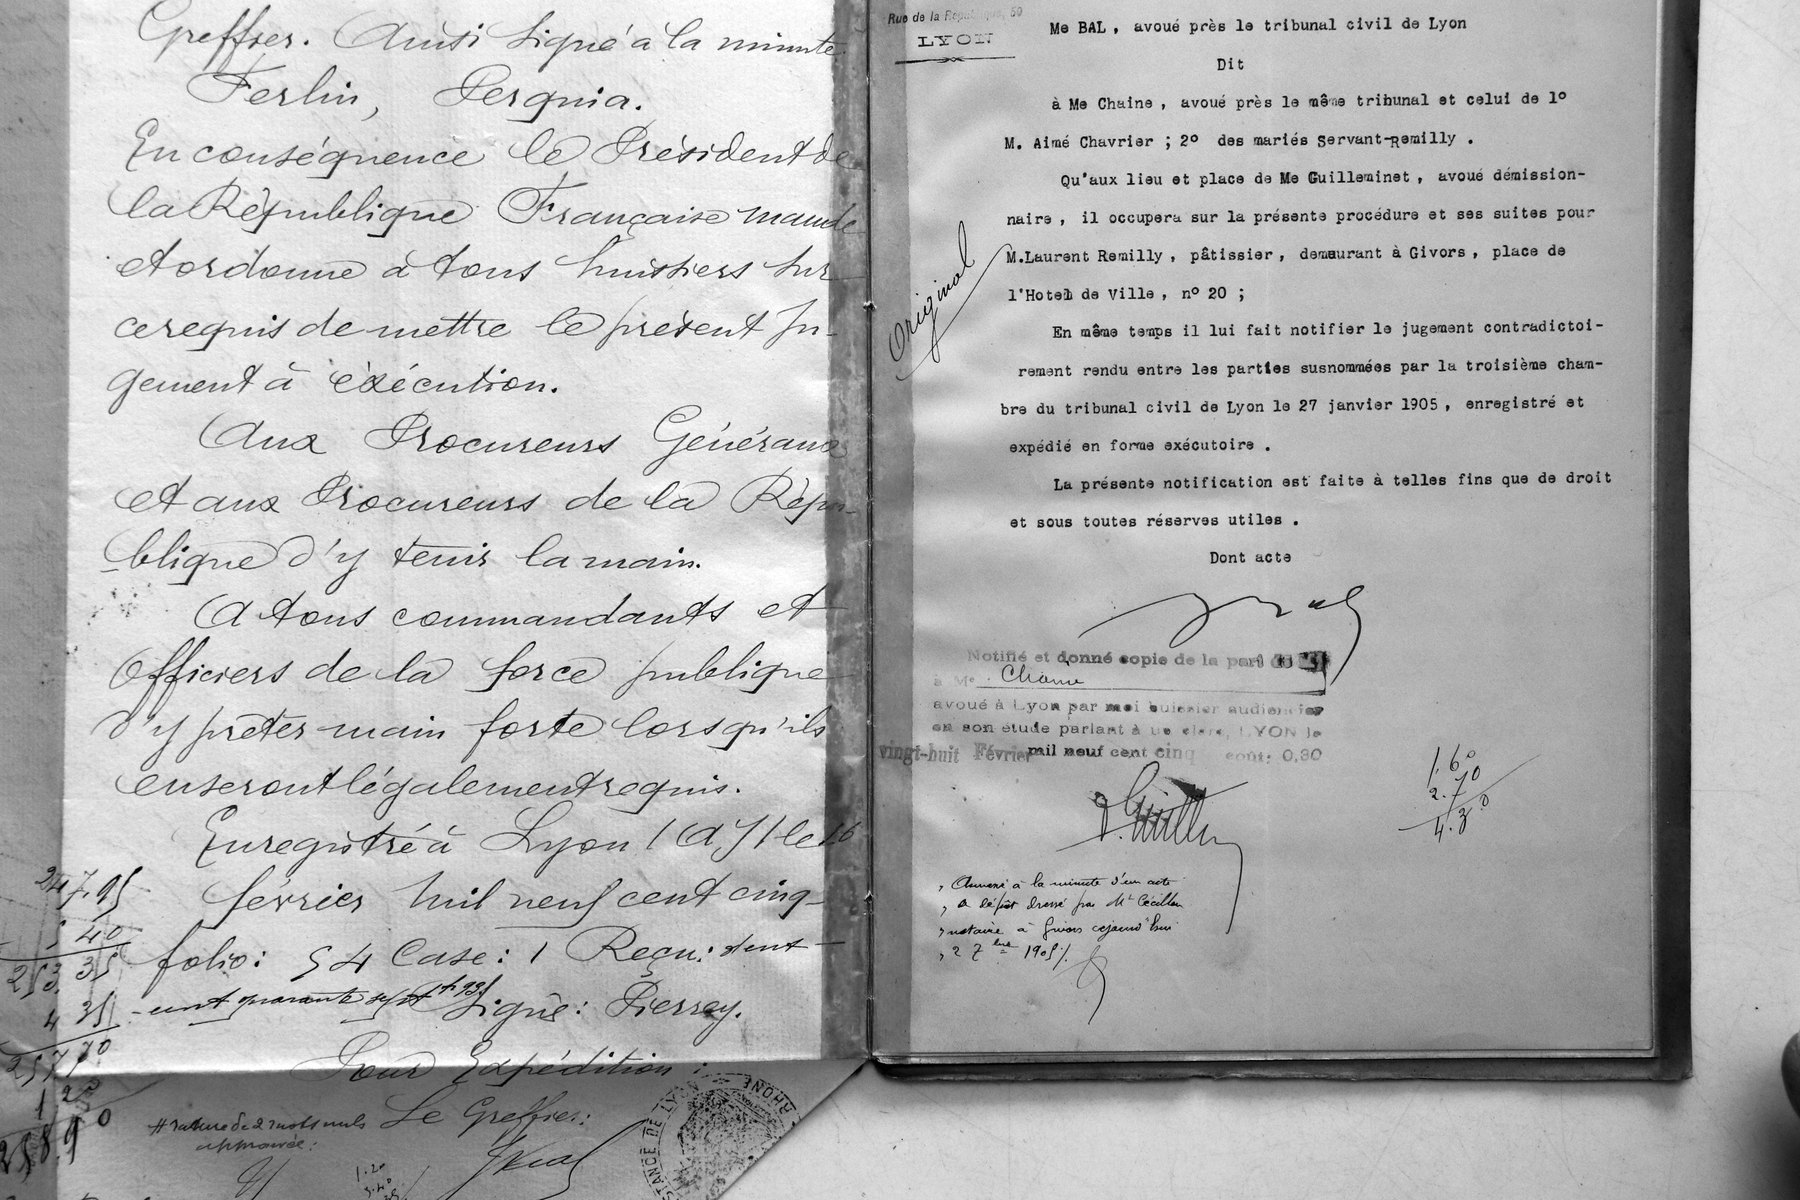 Greffier. Ainsi signé à la minute
Ferlin, Pergnia.
En conséquence le Président de
la République Française mande
et ordonne à tous huissiers sur
ce requis de mettre le présent ju-
gement à éxécution.
Aux Procureurs Généraux
et aux Procureurs de la Répu-
blique d'y tenir la main.
A tous commandants et
Officiers de la force publique
d'y prêter main forte lorsqu'ils
en seront légalement requis.
Enregistré à Lyon (A J) le 16
février mil neuf cent cinq
folio: 54 Case: 1 Reçu: deux
cent quarante sept f. 95
Signé: Pierrey.
Pour Expédition:
# rature de 2 mots nuls
approuvée:
Le Greffier:
247.95
5 40
253.35
4 35
257 70
1 20
258.90
STANCE DE LYON
RHONE
Rue de la République, 59
LYON
Original
Me BAL, avoué près le tribunal civil de Lyon
Dit
à Me Chaine, avoué près le même tribunal et celui de 1º
M. Aimé Chavrier ; 2º des mariés Servant-Remilly .
Qu'aux lieu et place de Me Guilleminet, avoué démission-
naire, il occupera sur la présente procédure et ses suites pour
M.Laurent Remilly, pâtissier, demeurant à Givors, place de
l'Hotel de Ville, nº 20 ;
En même temps il lui fait notifier le jugement contradictoi-
rement rendu entre les parties susnommées par la troisième cham-
bre du tribunal civil de Lyon le 27 janvier 1905, enregistré et
expédié en forme exécutoire .
La présente notification est faite à telles fins que de droit
et sous toutes réserves utiles .
Dont acte
Notifié et donné copie de la part de
à Me Chaine
avoué à Lyon par moi huissier audiencier
en son étude parlant à un clerc, LYON le
vingt-huit Février mil neuf cent cinq coût: 0,90
1.60
2.70
4.30
Annexé à la minute d'un acte
de dépôt dressé par Me Cécillon
notaire à Givors cejourd'hui
27 1905